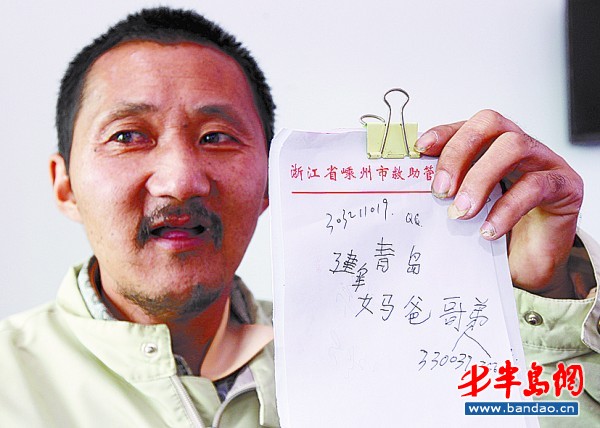 浙江省嵊州市救助管
303211019. QQ
建 青岛
妈爸 哥弟
半岛网
www.bandao.cn